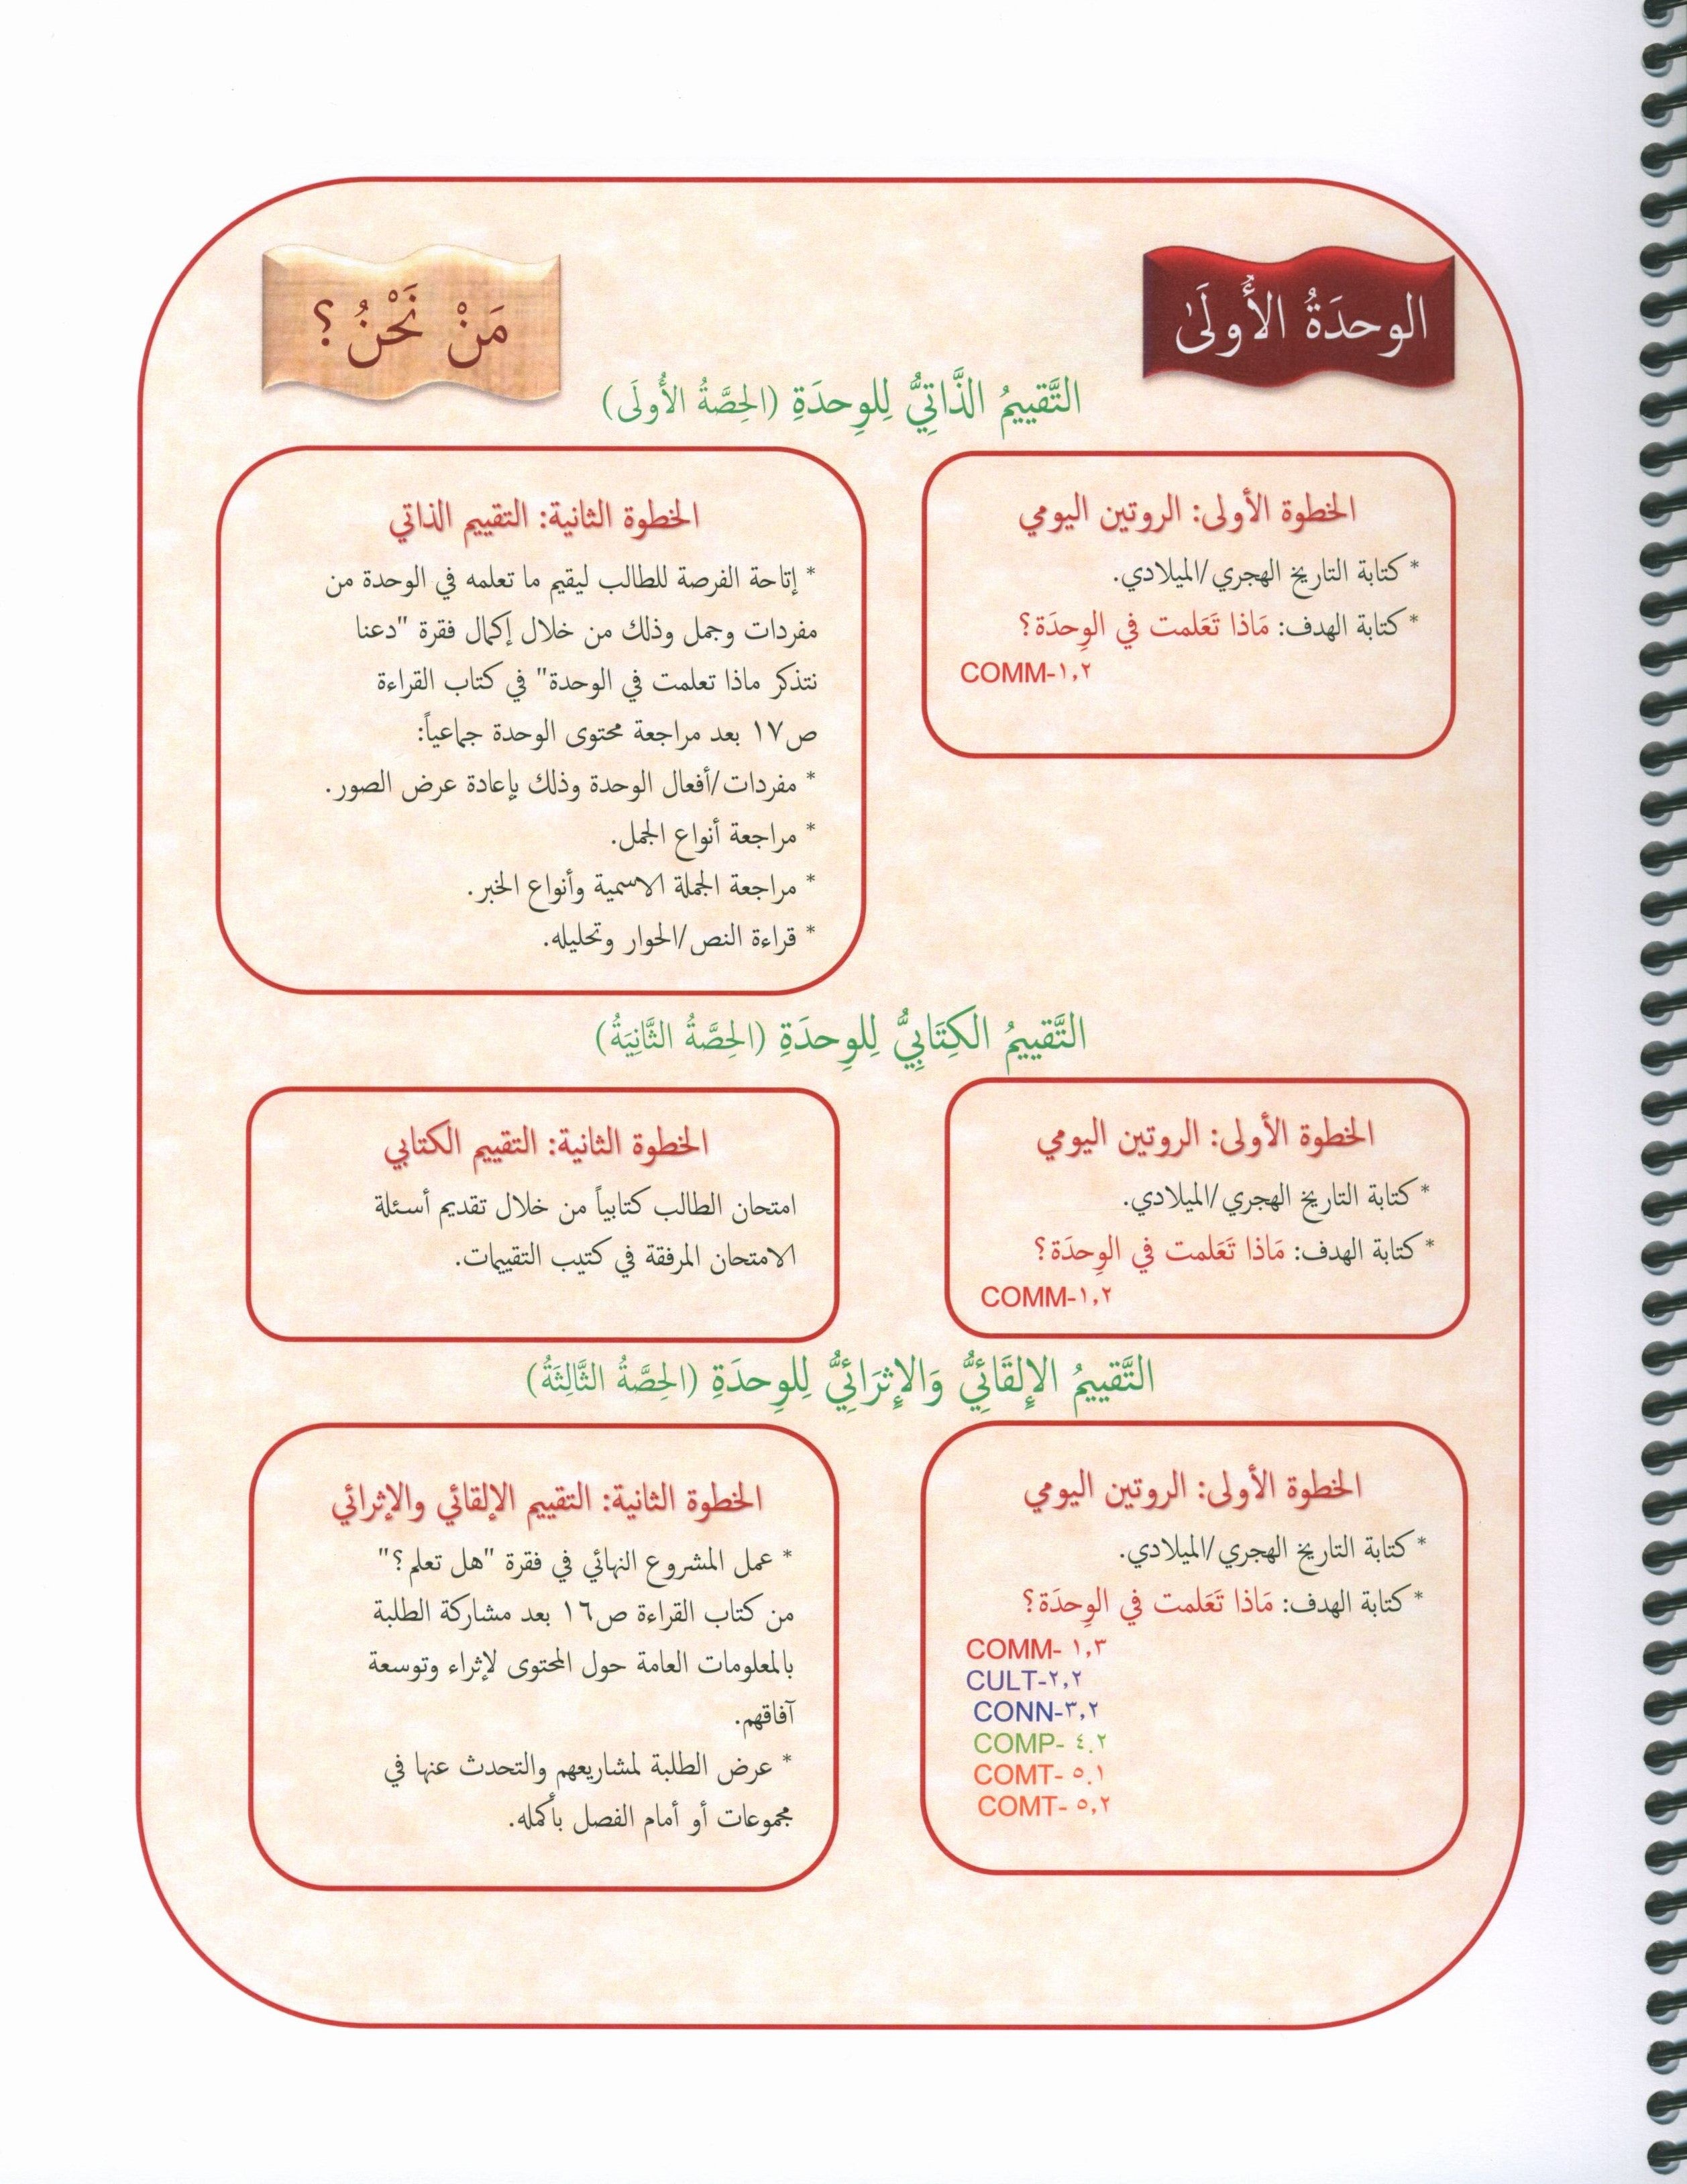 الوحدَةُ الأُولَىٰ
مَنْ نَحْنُ؟
التَّقييمُ الذَّاتِيُّ لِلوِحدَةِ (الحِصَّةُ الأُولَى)
الخطوة الأولى: الروتين اليومي
* كتابة التاريخ الهجري/الميلادي.
* كتابة الهدف: مَاذا تَعَلمت في الوِحدَة؟
COMM-١,٢
الخطوة الثانية: التقييم الذاتي
* إتاحة الفرصة للطالب ليقيم ما تعلمه في الوحدة من
مفردات وجمل وذلك من خلال إكمال فقرة "دعنا
نتذكر ماذا تعلمت في الوحدة" في كتاب القراءة
ص١٧ بعد مراجعة محتوى الوحدة جماعياً:
* مفردات/أفعال الوحدة وذلك بإعادة عرض الصور.
* مراجعة أنواع الجمل.
* مراجعة الجملة الاسمية وأنواع الخبر.
* قراءة النص/الحوار وتحليله.
التَّقييمُ الكِتَابِيُّ لِلوِحدَةِ (الحِصَّةُ الثَّانِيَةُ)
الخطوة الأولى: الروتين اليومي
* كتابة التاريخ الهجري/الميلادي.
* كتابة الهدف: مَاذا تَعَلمت في الوِحدَة؟
COMM-١,٢
الخطوة الثانية: التقييم الكتابي
امتحان الطالب كتابياً من خلال تقديم أسئلة
الامتحان المرفقة في كتيب التقييمات.
التَّقييمُ الإِلقَائِيُّ وَالإِثرَائِيُّ لِلوِحدَةِ (الحِصَّةُ الثَّالِثَةُ)
الخطوة الأولى: الروتين اليومي
* كتابة التاريخ الهجري/الميلادي.
* كتابة الهدف: مَاذا تَعَلمت في الوِحدَة؟
COMM- ١,٣
CULT-٢,٢
CONN-٣,٢
COMP- ٤.٢
COMT- ٥.١
COMT- ٥,٢
الخطوة الثانية: التقييم الإلقائي والإثرائي
* عمل المشروع النهائي في فقرة "هل تعلم؟"
من كتاب القراءة ص١٦ بعد مشاركة الطلبة
بالمعلومات العامة حول المحتوى لإثراء وتوسعة
آفاقهم.
* عرض الطلبة لمشاريعهم والتحدث عنها في
مجموعات أو أمام الفصل بأكمله.